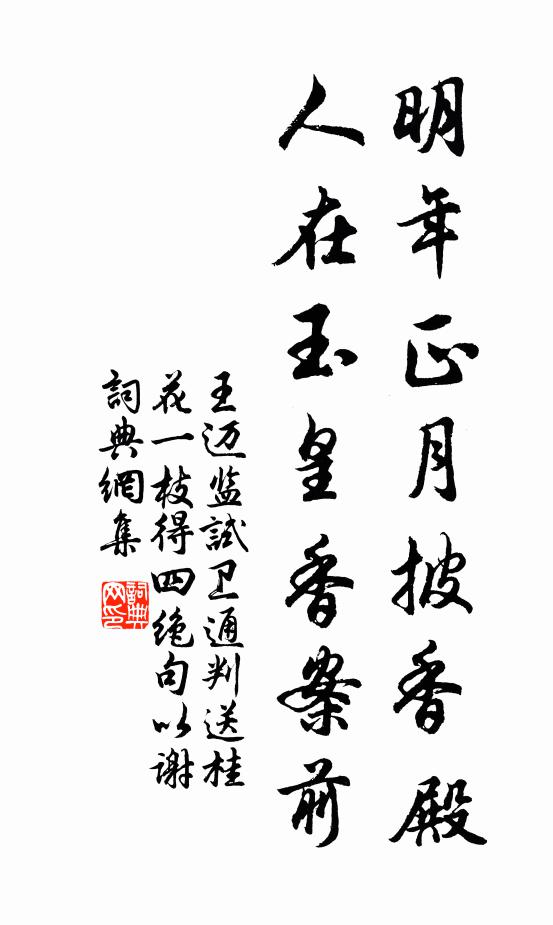 明年正月披香殿
人在玉皇香案前
王迈监試卫通判送桂
花一枝得四絶句以谢
詞典網集
詞典
网印